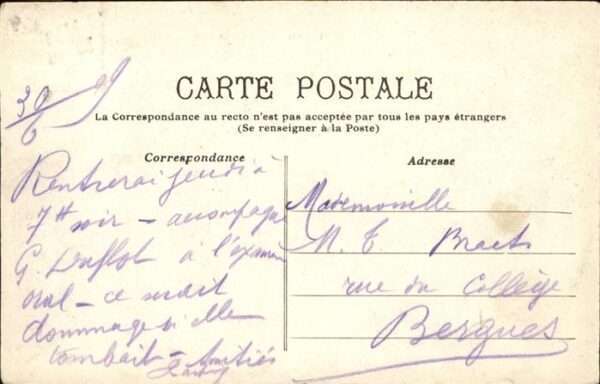 30/6 09
CARTE POSTALE
La Correspondance au recto n'est pas acceptée par tous les pays étrangers
(Se renseigner à la Poste)
Correspondance
Adresse
Rentrerai jeudi à
7h soir – accompagne
G. Duflot à l'examen
oral – ce serait
dommage si elle
tombait – Amitiés
Mademoiselle
M. C.
rue du Collège
Bergues